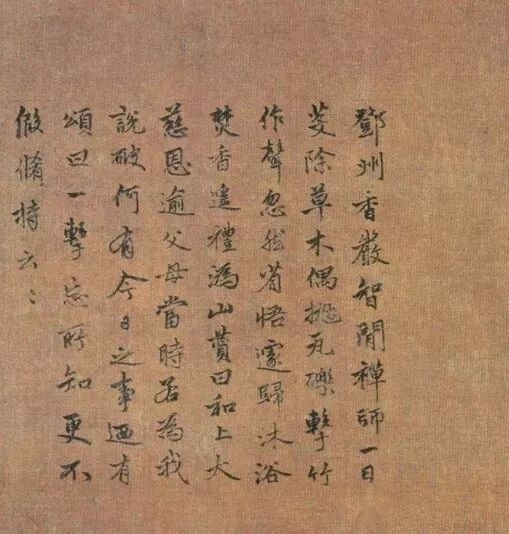 鄧州香嚴智閑禪師一日
芟除草木偶抛瓦礫擊竹
作聲忽然省悟遽歸沐浴
焚香遙禮溈山贊曰和上大
慈恩逾父母當時若為我
說破何有今日之事廼有
頌曰一擊忘所知更不
假脩持云〻